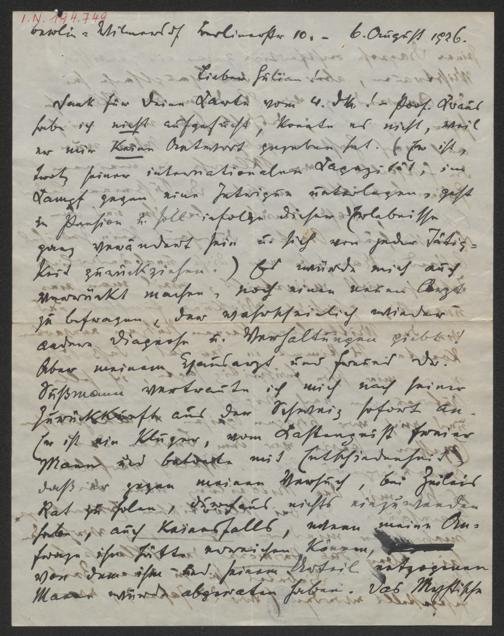 I.N. 194.749
Berlin-Wilmersdf Berlinerstr 10. - 6. August 1926.
Lieber Julian!
Dank für Deine Karte vom 4. ds! - Prof. Kraus
habe ich nicht aufgesucht, konnte es nicht, weil
er mir keine Antwort gegeben hat. (Er ist,
trotz seiner internationalen Kapazität, im
Kampf gegen eine Intrigue unterlegen, geht
in Pension u. soll infolge dieser Erlebnisse
ganz verändert sein u. sich von jeder Tätig=
keit zurückziehen.) Es würde mich auch
verrückt machen, noch einen neuen Arzt
zu befragen, der wahrscheinlich wieder
andere Diagnose u. Verhaltungen giebt!
Aber meinem Hausarzt und Freund Dr.
Sußmann vertraute ich mich nach seiner
Zurückkunft aus der Schweiz sofort an.
Er ist ein kluger, vom Kastengeist freier
Mann und betonte mit Entschiedenheit,
daß er gegen meinen Versuch, bei Zeileis
Rat zu holen, durchaus nichts einzuwenden
habe, auch keinesfalls, wenn meine An-
frage ihn hätte erreichen können,
vor dem ihm und seinem Urteil entzogenen
Manne würde abgeraten haben. Das Mystische